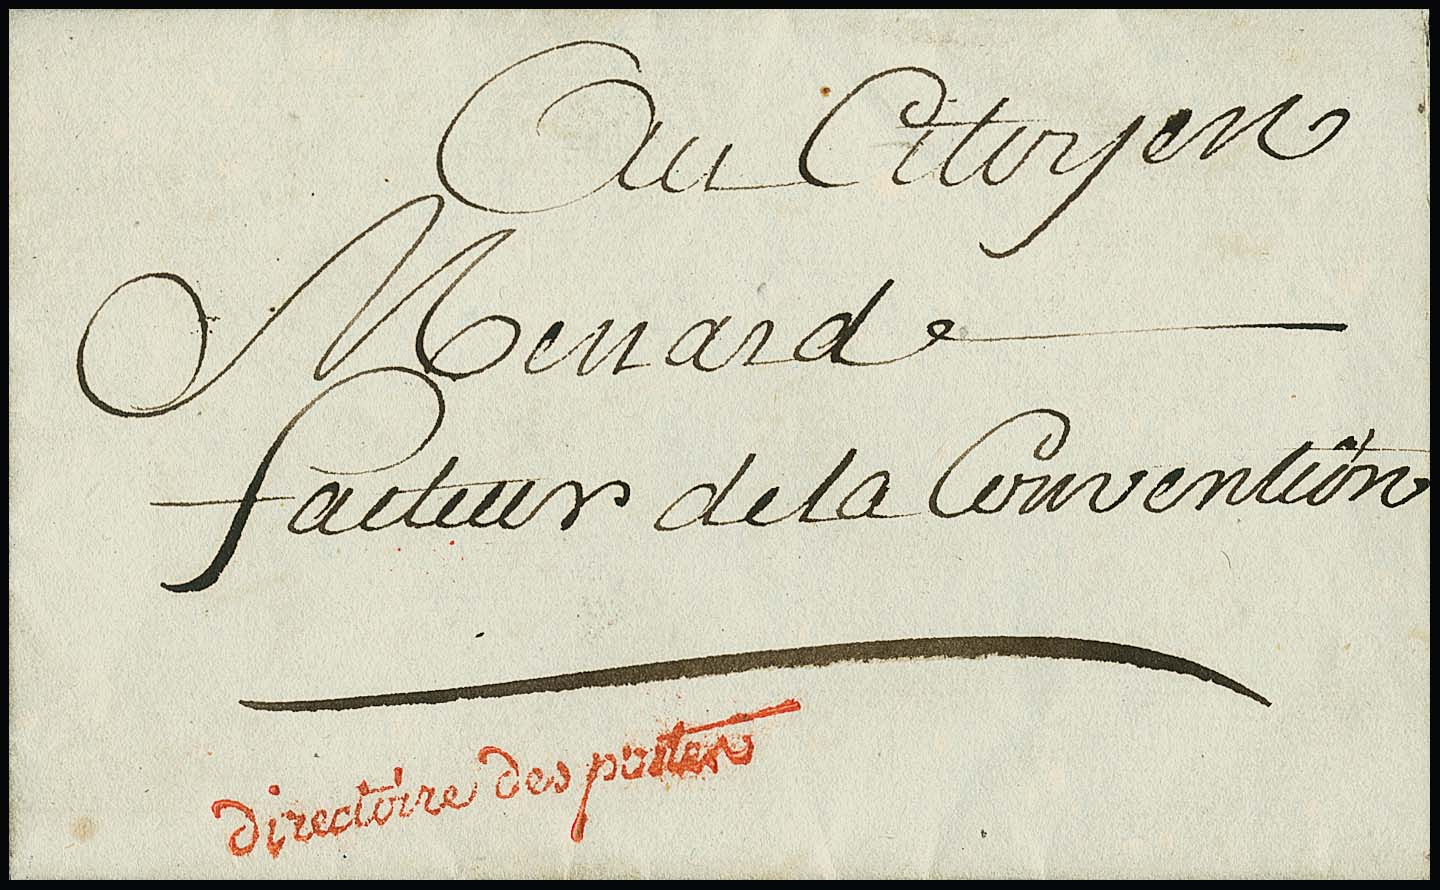 Au Citoyen
Menard
facteur de la Convention
directoire des postes